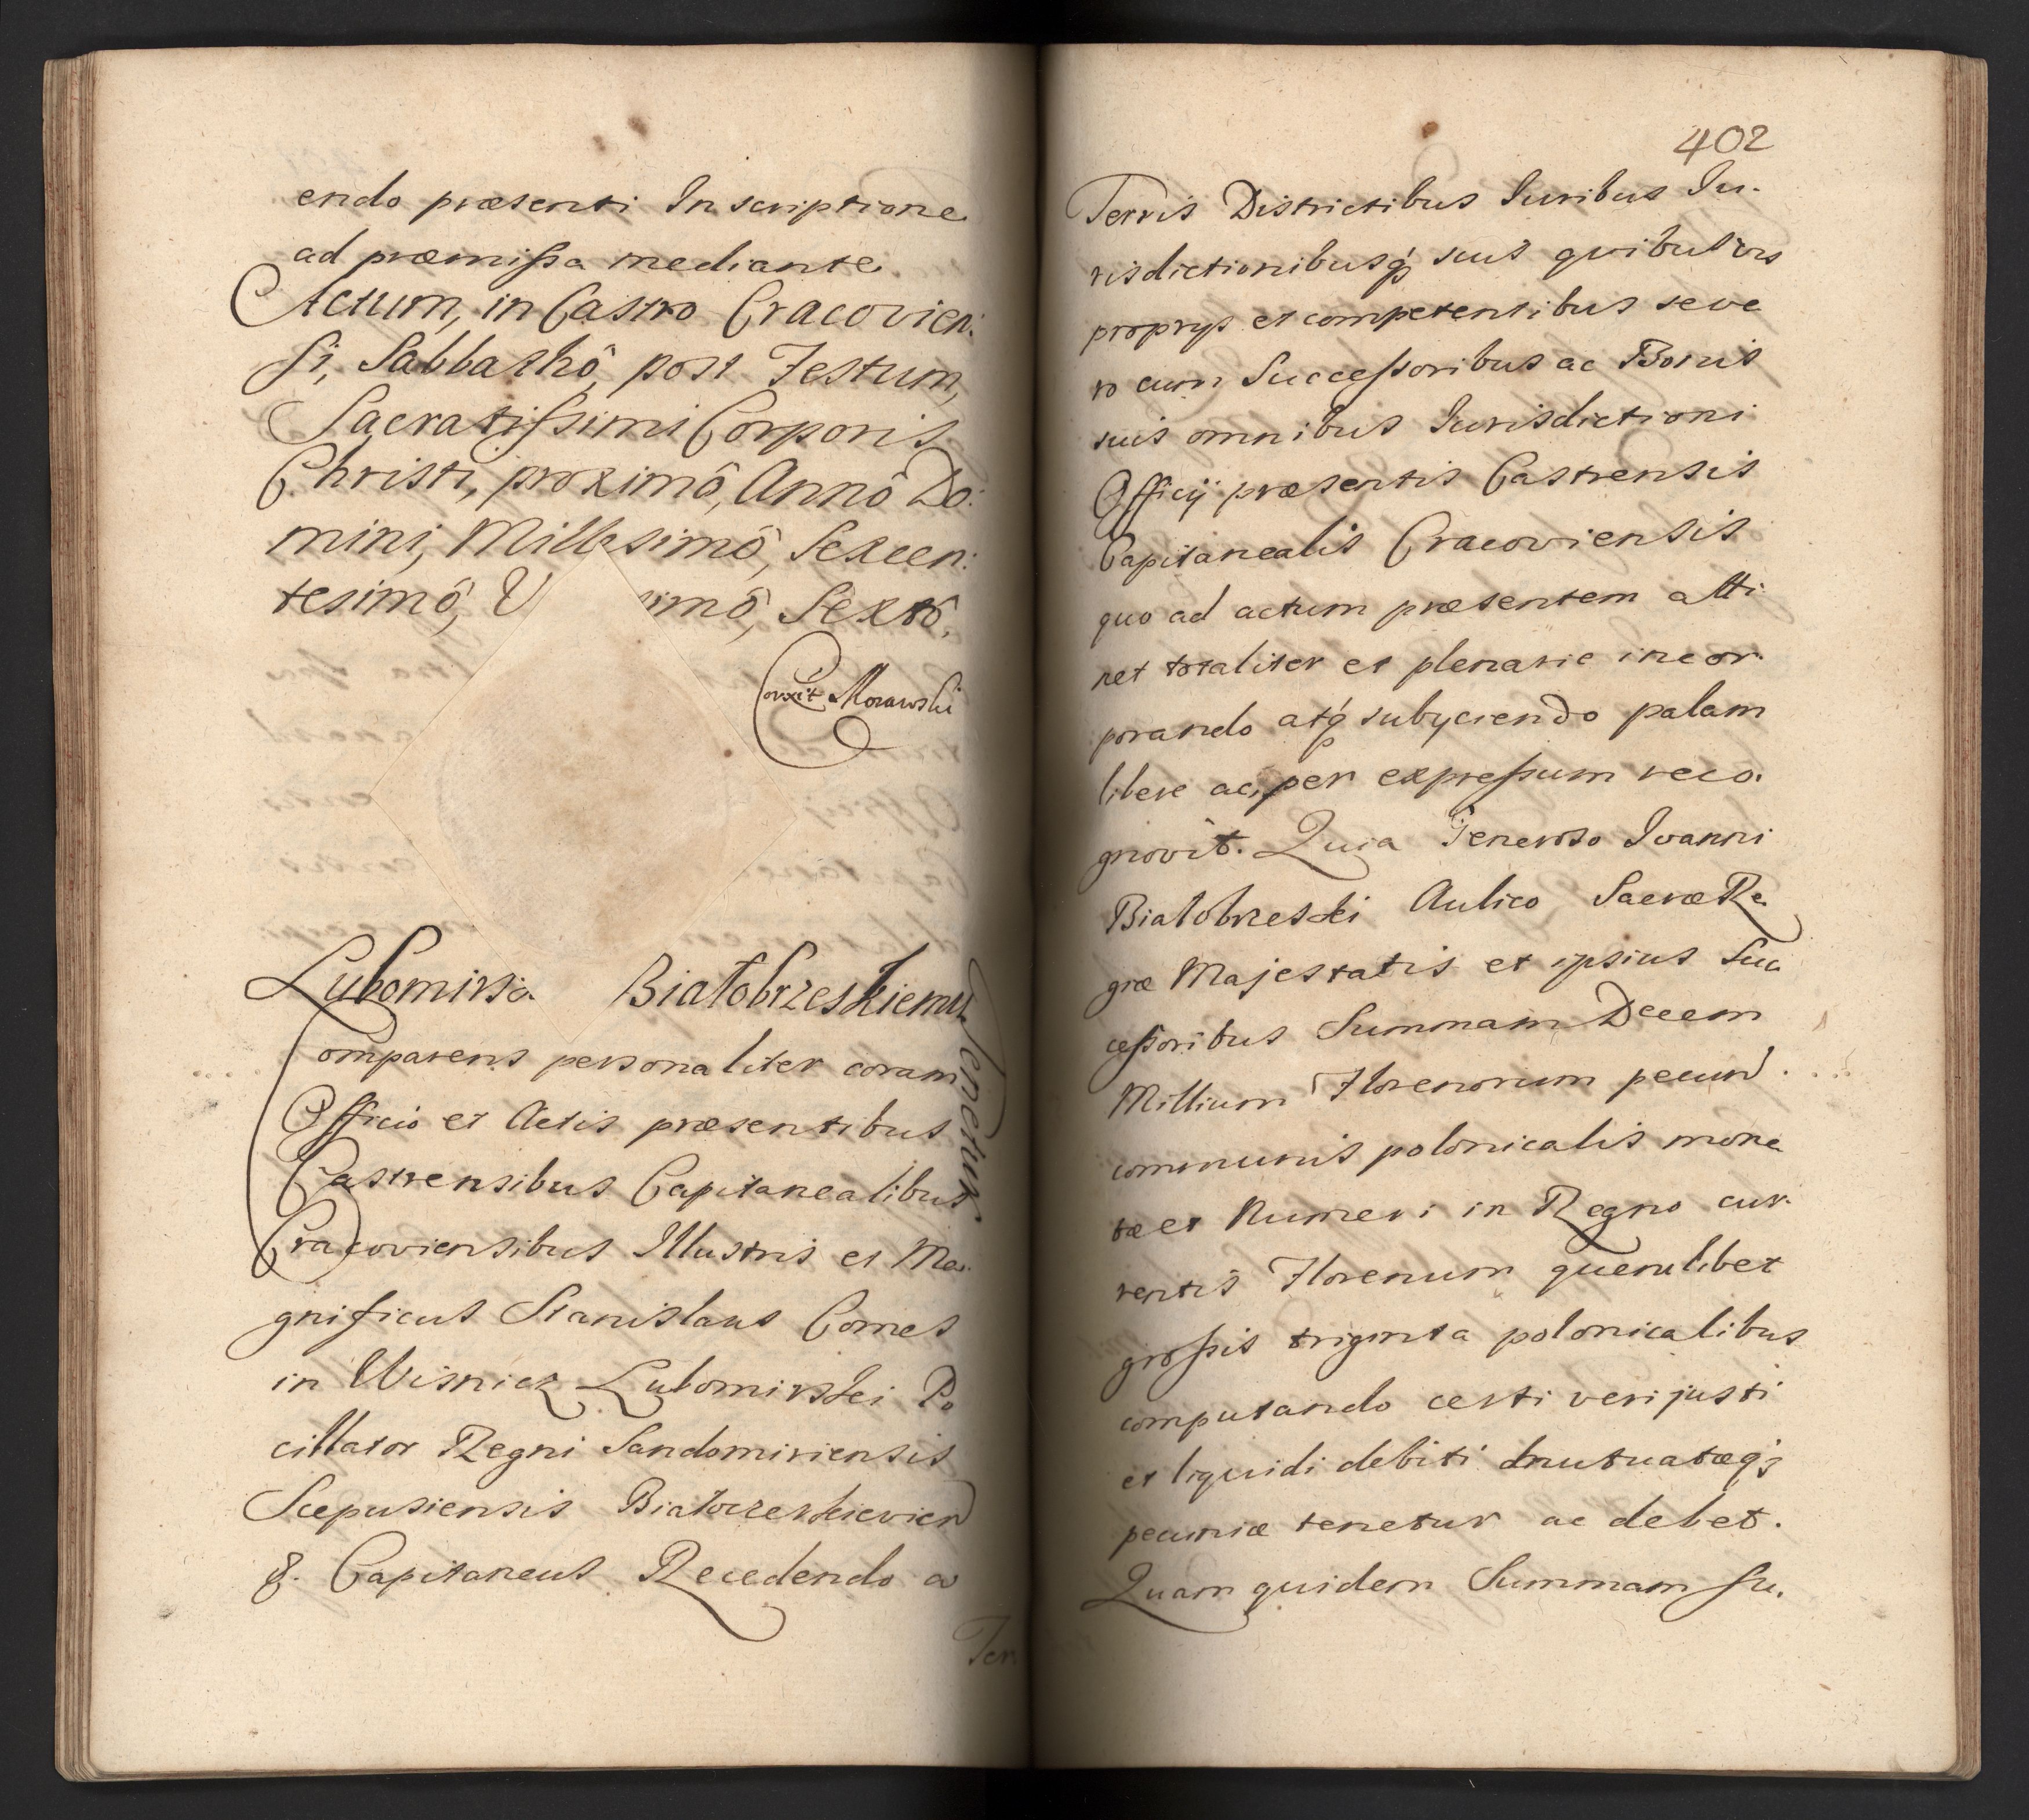 endo præsenti Inscriptione
ad præmissa mediante
Actum, in Castro Cracovien:
si, Sabbathô, post Festum,
Sacratissimi Corporis
Christi, proximô, Annô Do:
mini, Millesimô, Sexcen:
tesimô, V simô, Sextô,
Corrxit Morawski
Lubomirs Białobrzeskiemu
Tenetur
Comparens personaliter coram
Officio et Actis præsentibus
Castrensibus Capitanealibus
Cracoviensibus Illustris et Ma
gnificus Stanislaus Comes
in Wisnicz Lubomirski Po
cillator Regni Sandomiriensis
Scepusiensis
&. Capitaneus Recedendo a
Ter
402
Terris Districtibus Iuribus Iu
risdictionibusq́ suis quibusvis
proprys et competentibus seve
ro cum Successoribus ac Bonis
suis omnibus Iurisdictioni
Officij præsentis Castrensis
Capitanealis Cracoviensis
quo ad actum præsentem atti
net totaliter et plenarie incor
porando atq́ subyciendo palam
libere ac per expressum reco
gnovit. Quia Generoso Ioanni
Białobrzeski Aulico Sacræ Re
giæ Majestatis et ipsius Suc
cessoribus Summam Decem
Millium Florenorum pecun
communis polonicalis mone
tæ et Numeri in Regno cur
rentis Florenum quemlibet
grossis triginta polonicalibus
computando certi veri justi
et liquidi debiti mutuatæq́
pecuniæ tenetur ac debet.
Quam quidem Summam su